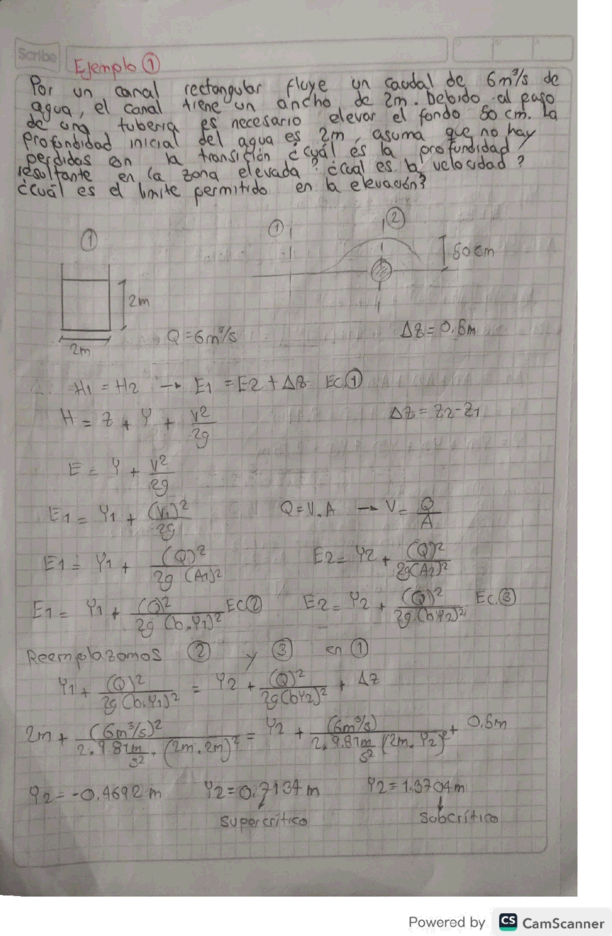 Scribe
Ejemplo ①
Por un canal rectangular fluye un caudal de 6m³/s de
agua, el canal tiene un ancho de 2m. Debido al paso
de una tubería es necesario elevar el fondo 50 cm. La
profundidad inicial del agua es 2m, asuma que no hay
perdidas en la transición ¿cuál es la profundidad
resultante en la zona elevada? ¿cual es la velocidad?
¿cuál es el limite permitido en la elevación?
① ① ②
50cm
2m
2m
Q = 6m³/s
Δz = 0,5m
H1 = H2 → E1 = E2 + Δz Ec①
H = z + y + v²/2g
Δz = z2 - z1
E = y + v²/2g
E1 = y1 + (v1)²/2g
Q = V.A → V = Q/A
E1 = y1 + (Q)²/2g (A1)²
E2 = y2 + (Q)²/2g(A2)²
E1 = y1 + (Q)²/2g (b.y1)² Ec②
E2 = y2 + (Q)²/2g(by2)² Ec③
Reemplazamos ② y ③ en ①
y1 + (Q)²/2g(b.y1)² = y2 + (Q)²/2g(by2)² + Δz
2m + (6m³/s)²/2.9.81m/s².(2m.2m)² = y2 + (6m³/s)/2.9.81m/s²(2m.y2)² + 0,5m
y2 = -0.4692 m y2 = 0.7134 m y2 = 1.3704m
Supercrítico
Subcrítico
Powered by CS CamScanner